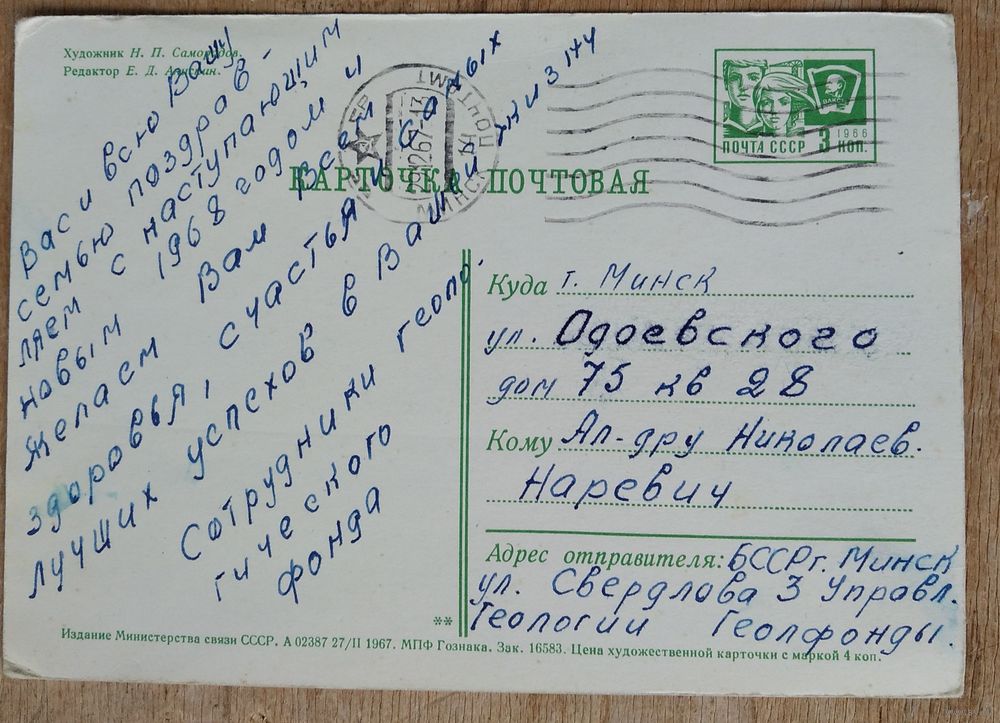 Художник Н. П.
Редактор Е. Д.
Вас и всю Вашу
семью поздрав-
ляем с наступающим
новым 1968 годом и
желаем Вам всем самых
здоровья, счастья и
лучших успехов в Вашей жизни
Сотрудники геоло-
гического
фонда
МИНСК
ПОЧТАМТ
1967
ВЛКСМ
1966
ПОЧТА СССР 3 КОП.
КАРТОЧКА ПОЧТОВАЯ
Куда г. Минск
ул. Одоевского
дом 75 кв 28
Кому Ал-дру Николаев.
Наревич
Адрес отправителя: БССР г. Минск
ул. Свердлова 3 Управл.
Геологии Геолфонды.
**
Издание Министерства связи СССР. А 02387 27/II 1967. МПФ Гознака. Зак. 16583. Цена художественной карточки с маркой 4 коп.